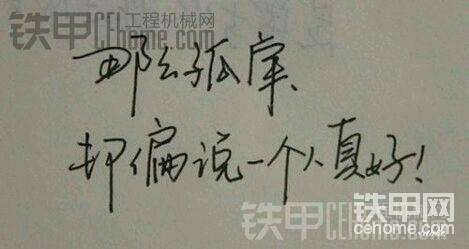 铁甲CE工程机械网
CEhome.com
那么孤单、
却偏说一个人真好！
铁甲CEhome.com
铁甲网
cehome.com